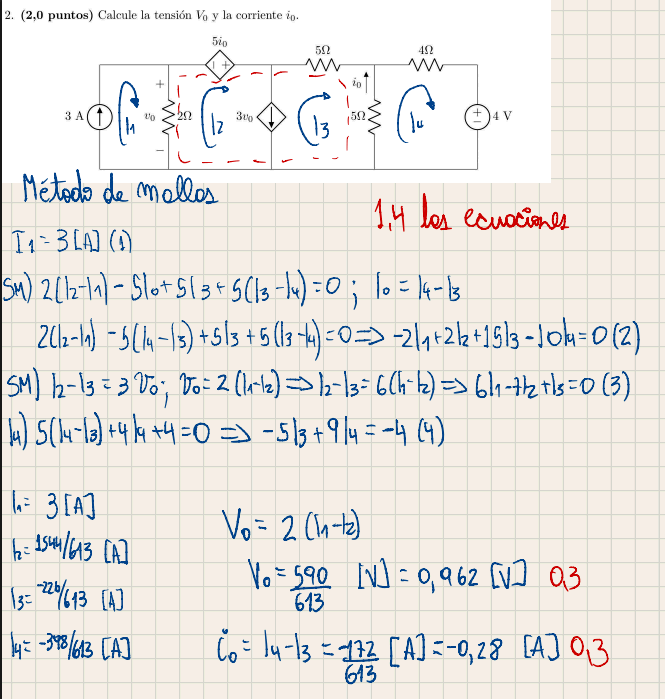 2. (2,0 puntos) Calcule la tensión V₀ y la corriente i₀.
5i₀ 5Ω 4Ω
− + i₀
3 A + v₀ − 2Ω 3v₀ 5Ω + − 4 V
I1 I2 I3 I4
Método de mallas
1,4 las ecuaciones
I1 = 3[A] (1)
SM) 2(I2-I1) - 5I0 + 5I3 + 5(I3-I4) = 0 ; I0 = I4 - I3
2(I2-I1) - 5(I4-I3) + 5I3 + 5(I3-I4) = 0 => -2I1 + 2I2 + 15I3 - 10I4 = 0 (2)
SM) I2 - I3 = 3V0; V0 = 2(I1-I2) => I2 - I3 = 6(I1-I2) => 6I1 - 7I2 + I3 = 0 (3)
I4) 5(I4-I3) + 4I4 + 4 = 0 => -5I3 + 9I4 = -4 (4)
I1 = 3[A]
I2 = 1544/613 [A]
I3 = -226/613 [A]
I4 = -398/613 [A]
V0 = 2(I1-I2)
V0 = 590/613 [V] = 0,962 [V] 0,3
i0 = I4 - I3 = -172/613 [A] = -0,28 [A] 0,3